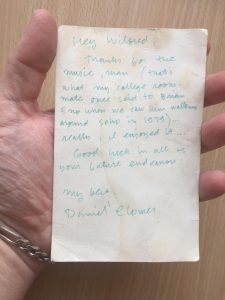 Hey Wilfred
Thanks for the
music, man. (that's
what my college room-
mate once said to Brian
Eno when we saw him walking
around soho in 1979)...
really I enjoyed it...
Good luck in all of
your future endeavors.
my best,
Daniel Clowes